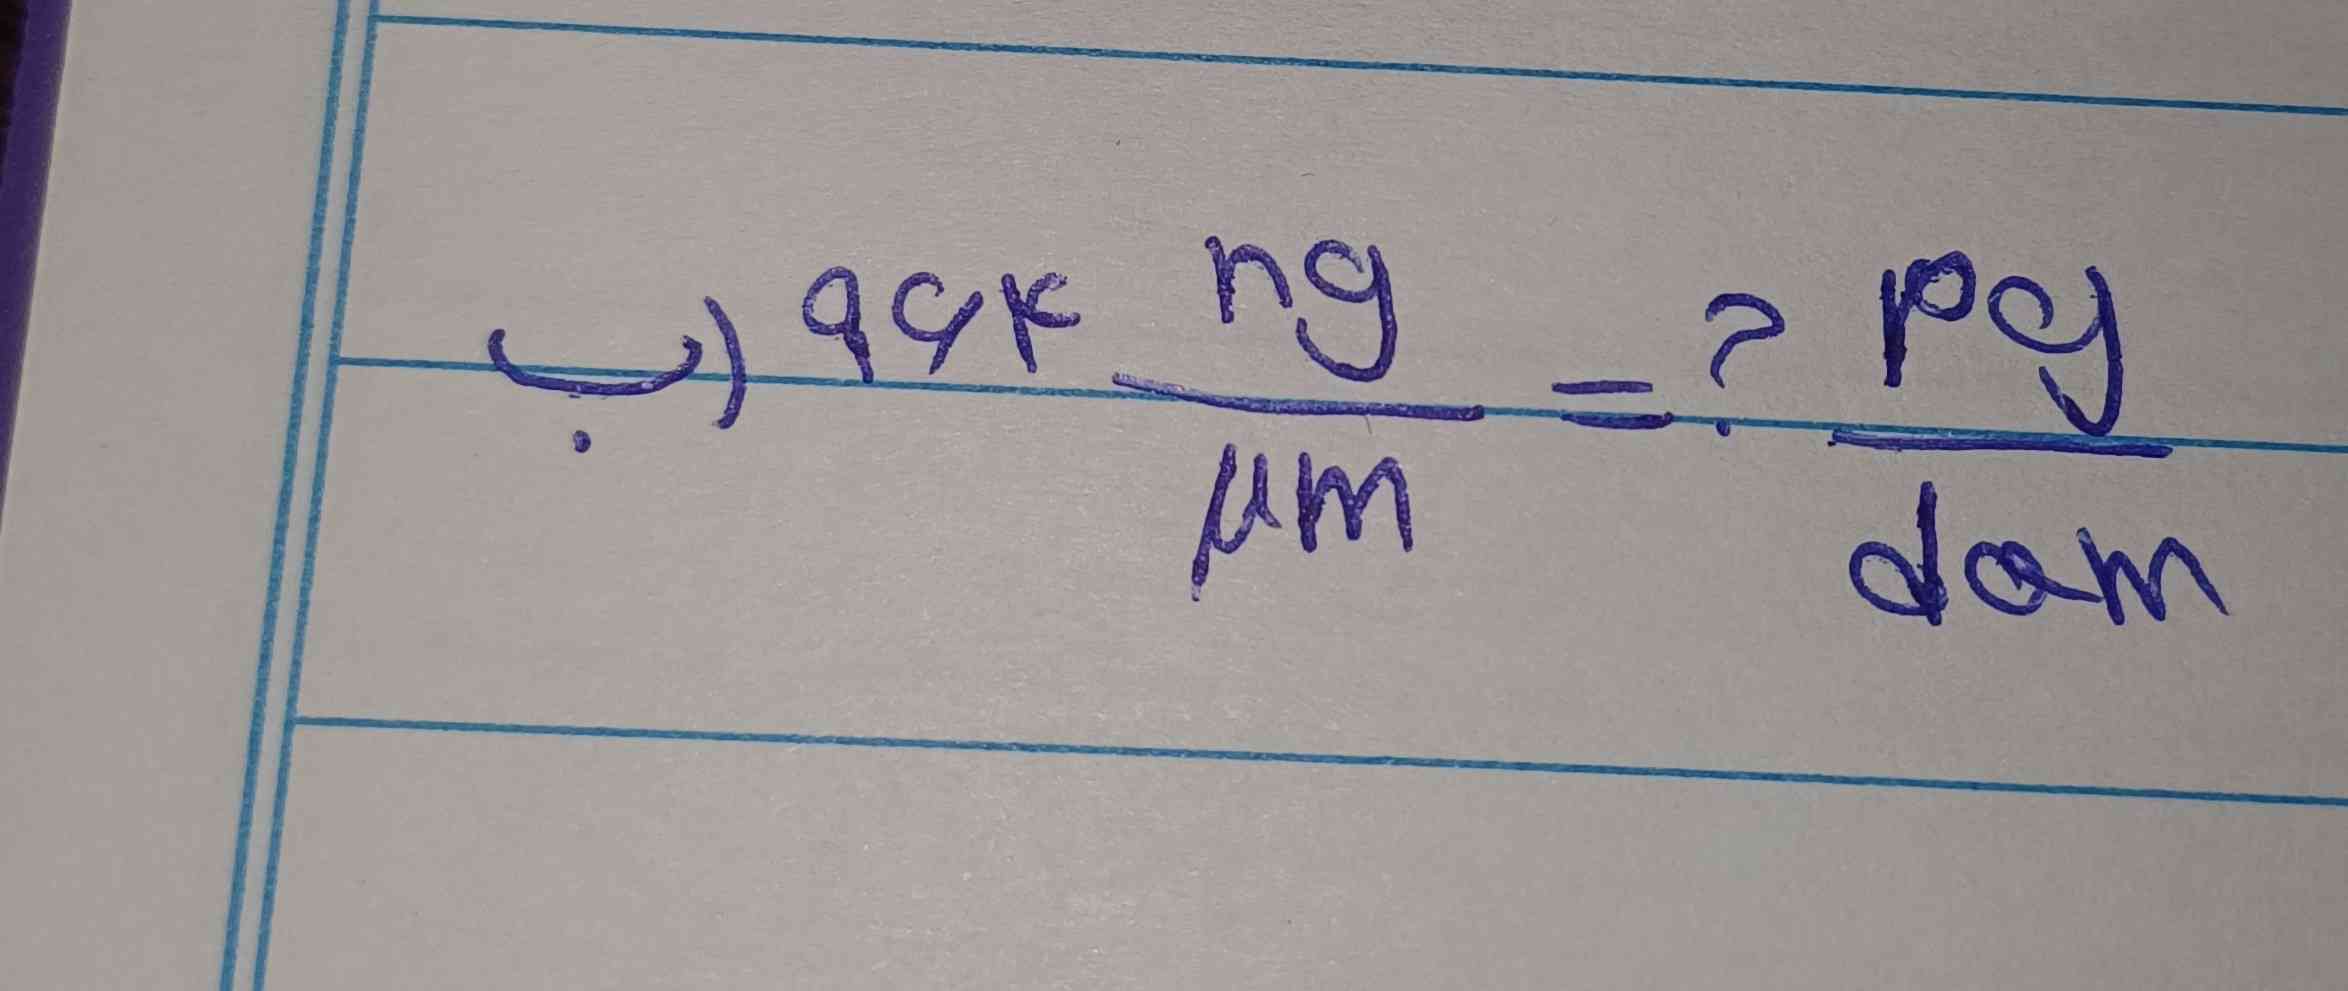 ب) ۹۶۴ ng/μm = ? pg/dam